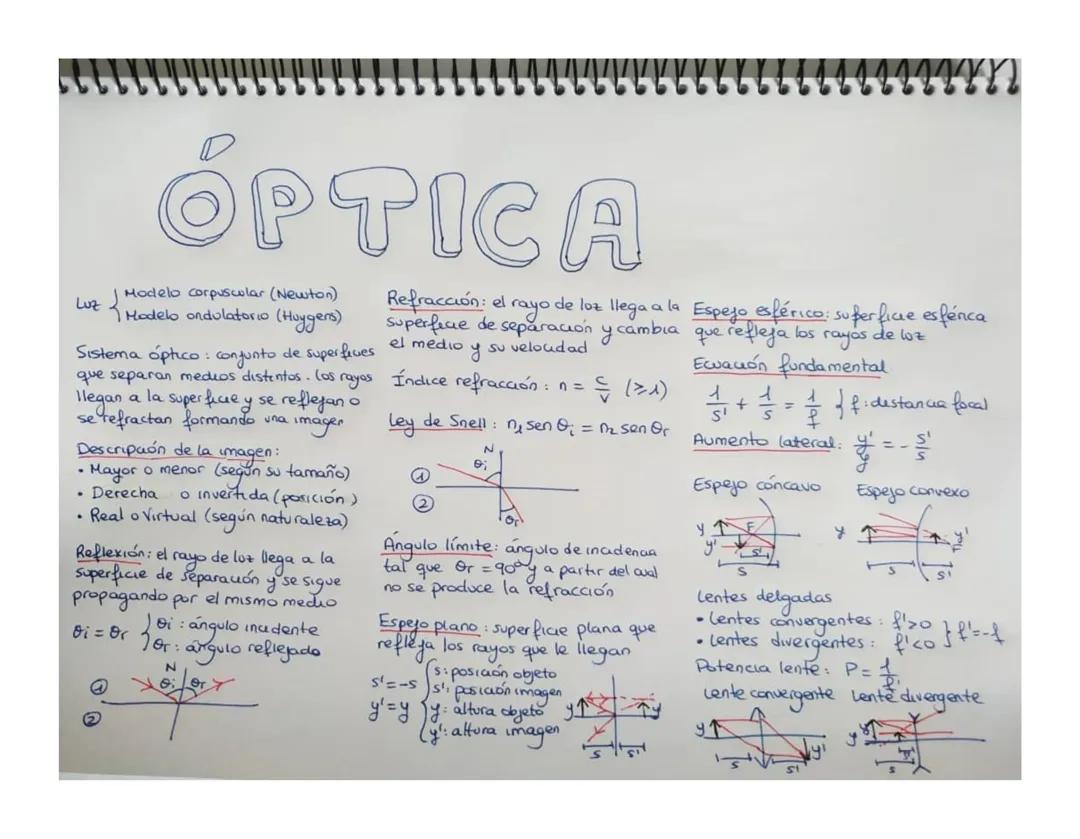 ÓPTICA
Luz { Modelo corpuscular (Newton)
Modelo ondulatorio (Huygens)
Sistema óptico: conjunto de superficies
que separan medios distintos. Los rayos
llegan a la superficie y se reflejan o
se refractan formando una imagen
Descripción de la imagen:
• Mayor o menor (según su tamaño)
• Derecha o invertida (posición)
• Real o Virtual (según naturaleza)
Reflexión: el rayo de luz llega a la
superficie de separación y se sigue
propagando por el mismo medio
θi = θr { θi: ángulo incidente
θr: ángulo reflejado
N
① θi θr
②
Refracción: el rayo de luz llega a la
superficie de separación y cambia
el medio y su velocidad
Índice refracción: n = c/v (⩾1)
Ley de Snell: n1 sen θi = n2 sen θr
N
θi
①
②
θr
Ángulo límite: ángulo de incidencia
tal que θr = 90° y a partir del cual
no se produce la refracción
Espejo plano: superficie plana que
refleja los rayos que le llegan
s' = -s { s: posición objeto
s': posición imagen
y' = y y: altura objeto
y': altura imagen
y y'
s s'
Espejo esférico: superficie esférica
que refleja los rayos de luz
Ecuación fundamental
1/s' + 1/s = 1/f { f: distancia focal
Aumento lateral: y'/y = - s'/s
Espejo cóncavo Espejo convexo
y F
y' s'
s
y y'
F
s s'
Lentes delgadas
• Lentes convergentes: f'>0
• Lentes divergentes: f'<0 } f'=-f
Potencia lente: P = 1/f'
Lente convergente Lente divergente
y y'
s s'
y y'
s'
s